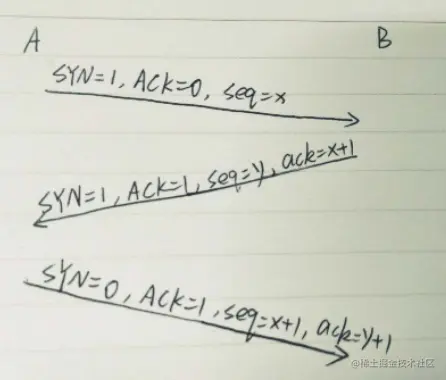 A B
SYN=1, ACK=0, seq=x
SYN=1, ACK=1, seq=y, ack=x+1
SYN=0, ACK=1, seq=x+1, ack=y+1
@稀土掘金技术社区